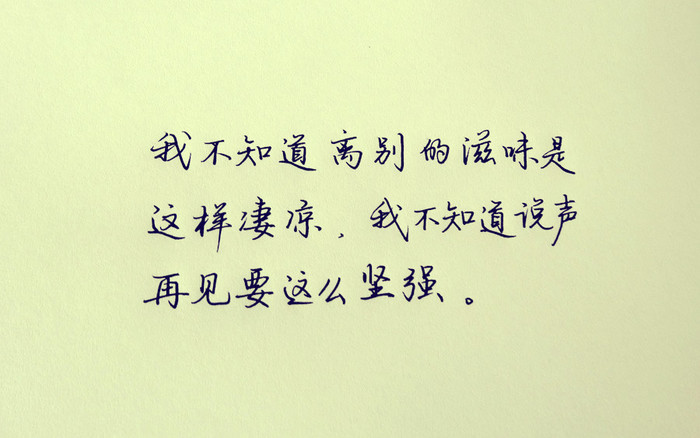 我不知道离别的滋味是
这样凄凉,我不知道说声
再见要这么坚强。